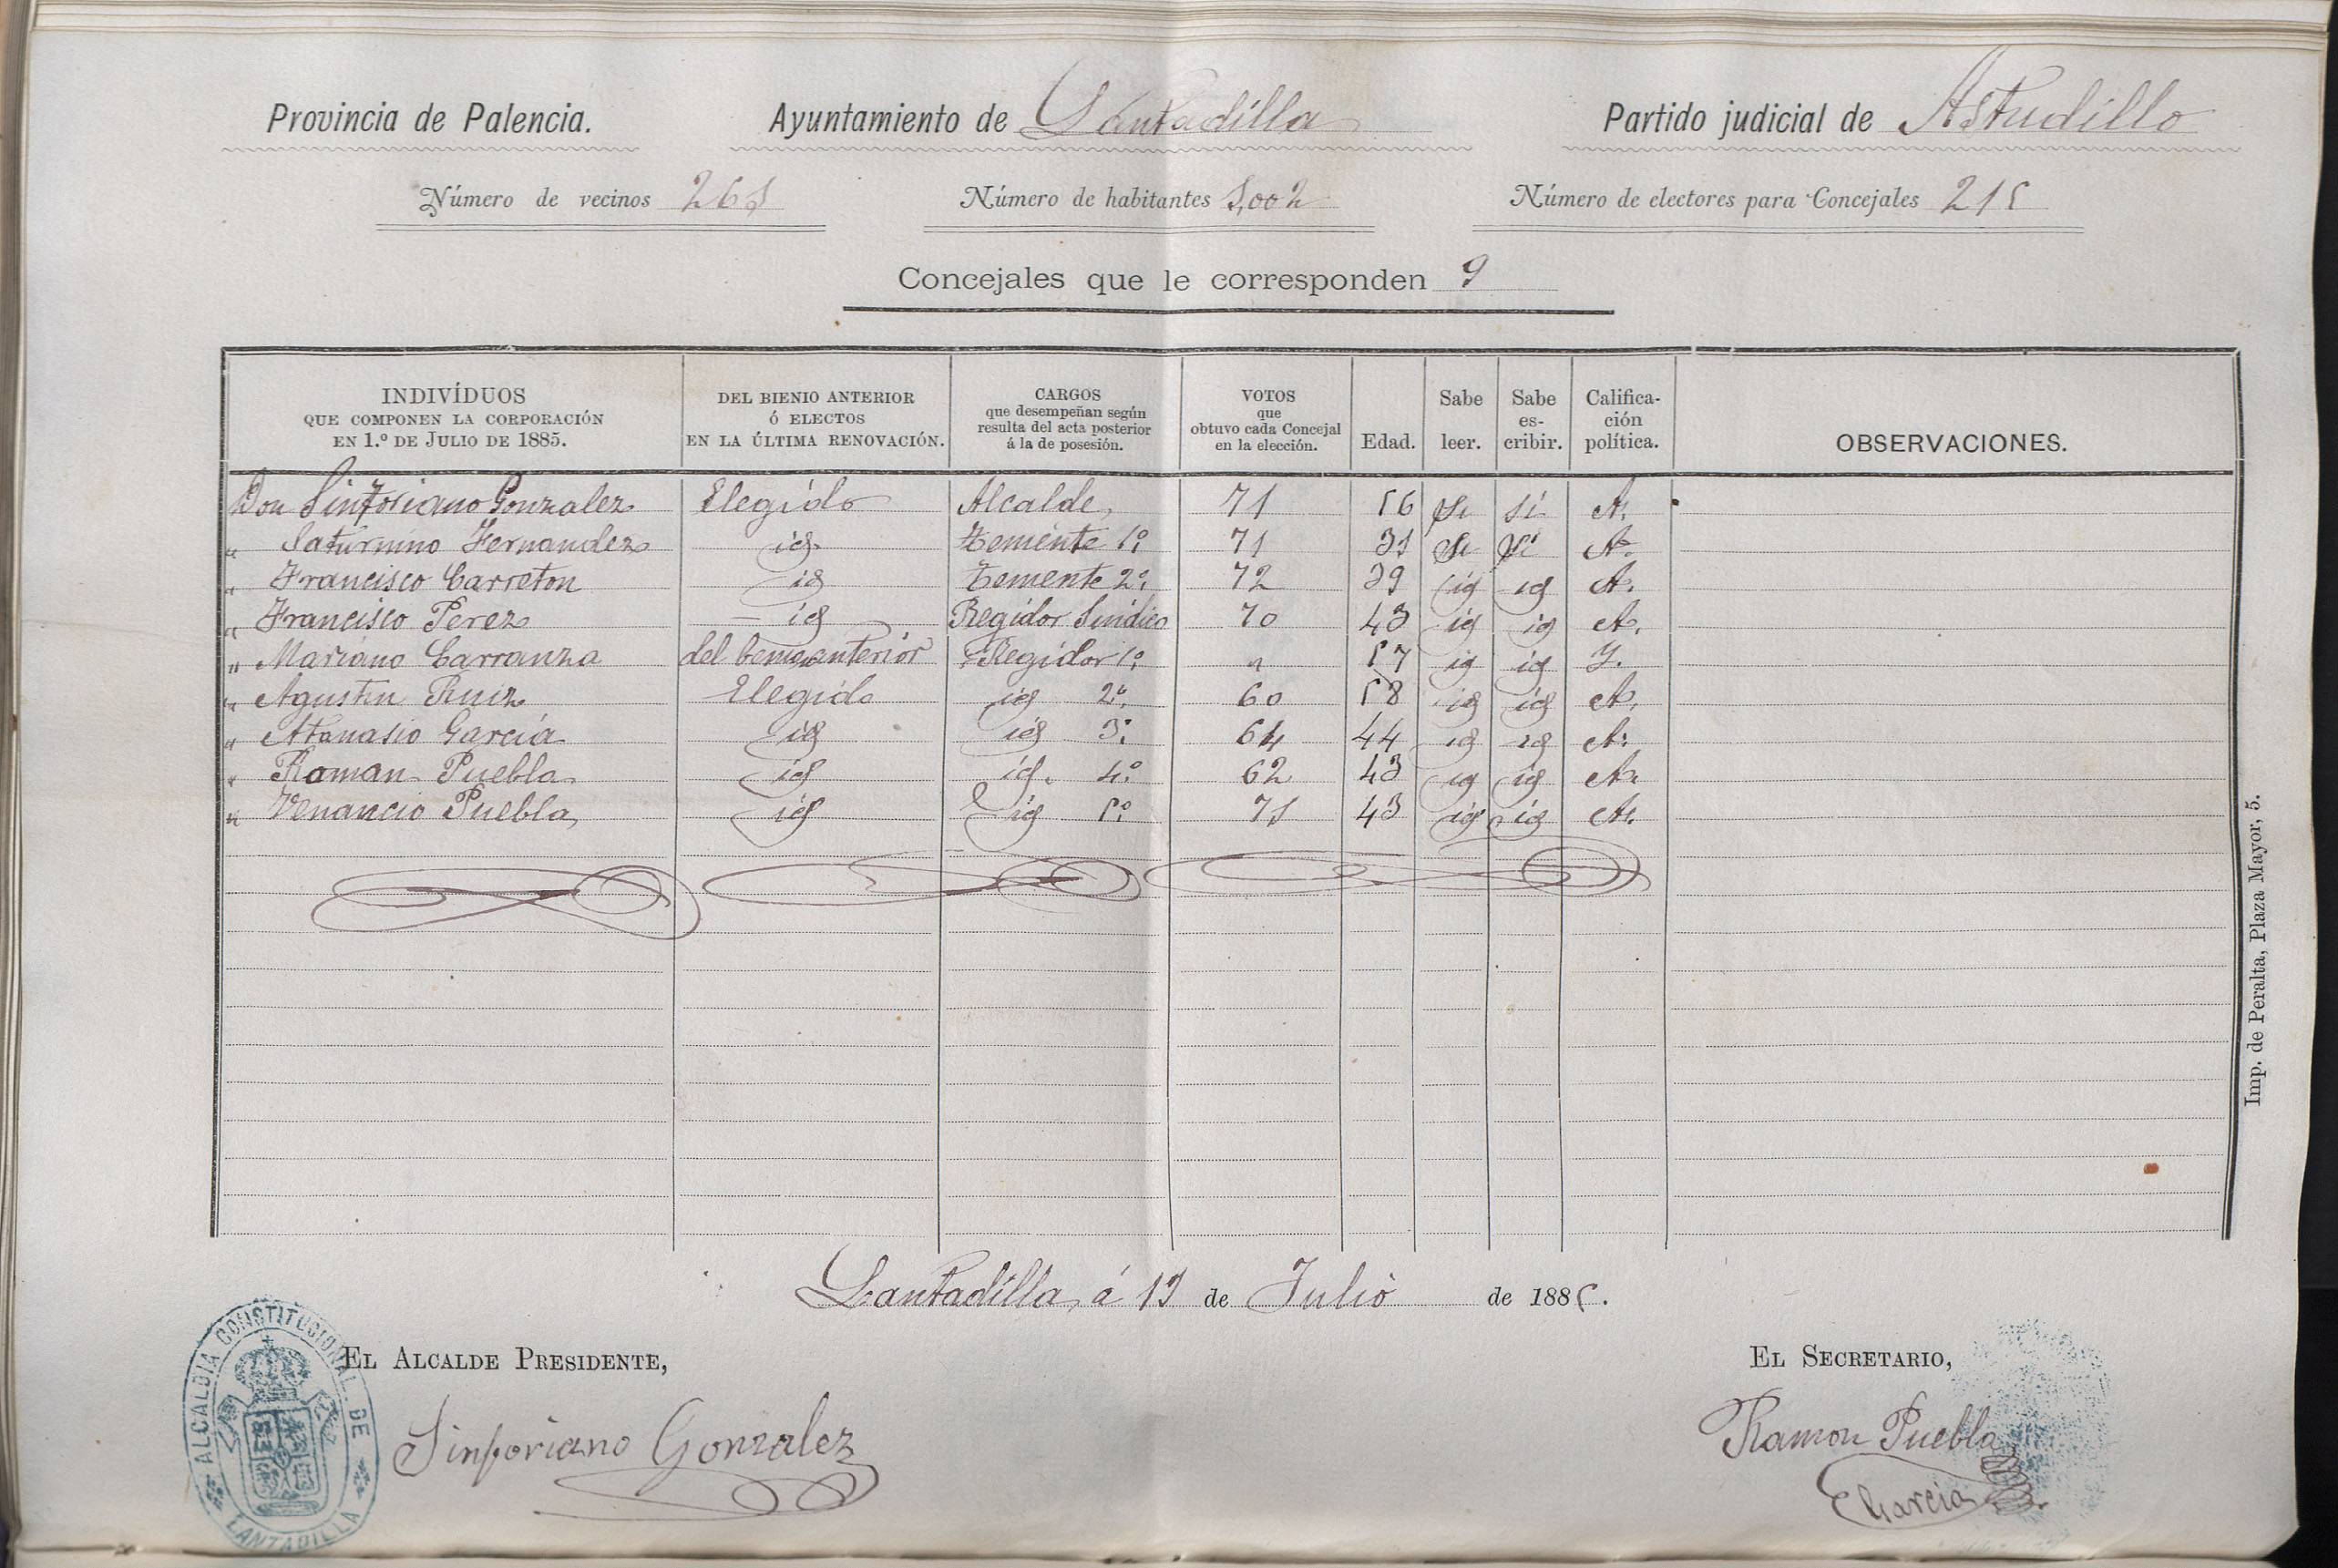 Provincia de Palencia. Ayuntamiento de Lantadilla Partido judicial de Astudillo
Número de vecinos 261 Número de habitantes 1,002 Número de electores para Concejales 215
Concejales que le corresponden 9
INDIVÍDUOS QUE COMPONEN LA CORPORACIÓN EN 1.º DE JULIO DE 1885. DEL BIENIO ANTERIOR Ó ELECTOS EN LA ÚLTIMA RENOVACIÓN. CARGOS que desempeñan según resulta del acta posterior á la de posesión. VOTOS que obtuvo cada Concejal en la elección. Edad. Sabe leer. Sabe es-cribir. Califica-ción política. OBSERVACIONES.
Don Sinforiano Gonzalez Elegido Alcalde 71 56 Si Si A.
" Saturnino Fernandez id. Teniente 1º 71 31 Si Si A.
" Francisco Carreton id Teniente 2º 72 39 id id A.
" Francisco Perez id Regidor Sindico 70 43 id id A.
" Mariano Carranza del anterior Regidor 1º " 57 id id Y.
" Agustin Ruiz Elegido id 2º 60 58 id id A.
" Atanasio García id id 3º 64 44 id id A.
" Roman Puebla id id. 4º 62 43 id id A.
" Venancio Puebla id id 5º 71 43 id id A.
Lantadilla, á 13 de Julio de 1885.
EL ALCALDE PRESIDENTE, EL SECRETARIO,
Sinforiano Gonzalez Ramon Puebla
Garcia
ALCALDIA CONSTITUCIONAL DE LANTADILLA
Imp. de Peralta, Plaza Mayor, 5.